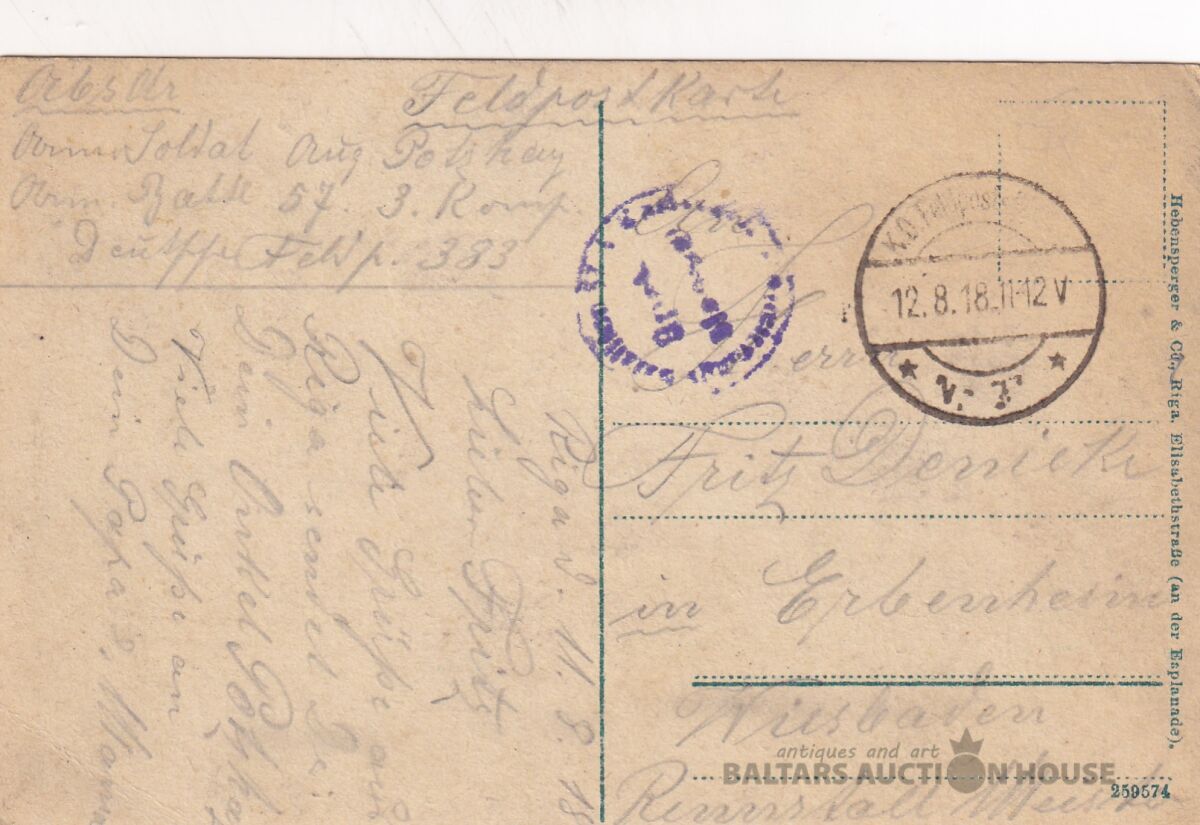 Feldpostkarte
Soldat Aug
57. 3. Komp.
Deutsche Feldp. 383
Riga d. 11. 8. 18
Lieber Fritz
Viele Grüße aus
Riga sendet Dir
Dein Onkel
Viele Grüße an
Dein Papa & Mama
K.D. Feldpost
12.8.18. 11-12 V
Herrn
Fritz Denicke
in Erbenheim
Wiesbaden
Hebensperger & Co., Riga, Elisabethstraße (an der Esplanade).
259574
antiques and art
BALTARS AUCTION HOUSE